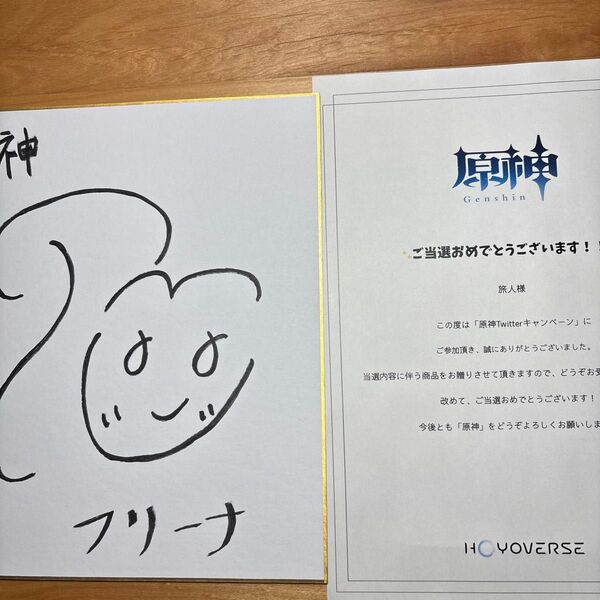 神
フリーナ
原神
Genshin
ご当選おめでとうございます！！
旅人様
この度は「原神Twitterキャンペーン」に
ご参加頂き、誠にありがとうございました。
当選内容に伴う商品をお贈りさせて頂きますので、どうぞお受
改めて、ご当選おめでとうございます！
今後とも「原神」をどうぞよろしくお願いしま
HOYOVERSE